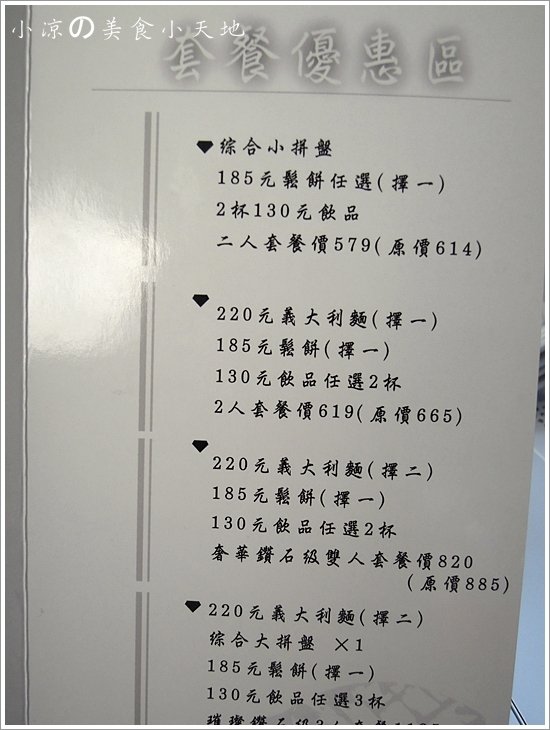 小涼の美食小天地
套餐優惠區
綜合小拼盤
185元鬆餅任選(擇一)
2杯130元飲品
二人套餐價579(原價614)
220元義大利麵(擇一)
185元鬆餅(擇一)
130元飲品任選2杯
2人套餐價619(原價665)
220元義大利麵(擇二)
185元鬆餅(擇一)
130元飲品任選2杯
奢華鑽石級雙人套餐價820
(原價885)
220元義大利麵(擇二)
綜合大拼盤 ×1
185元鬆餅(擇一)
130元飲品任選3杯